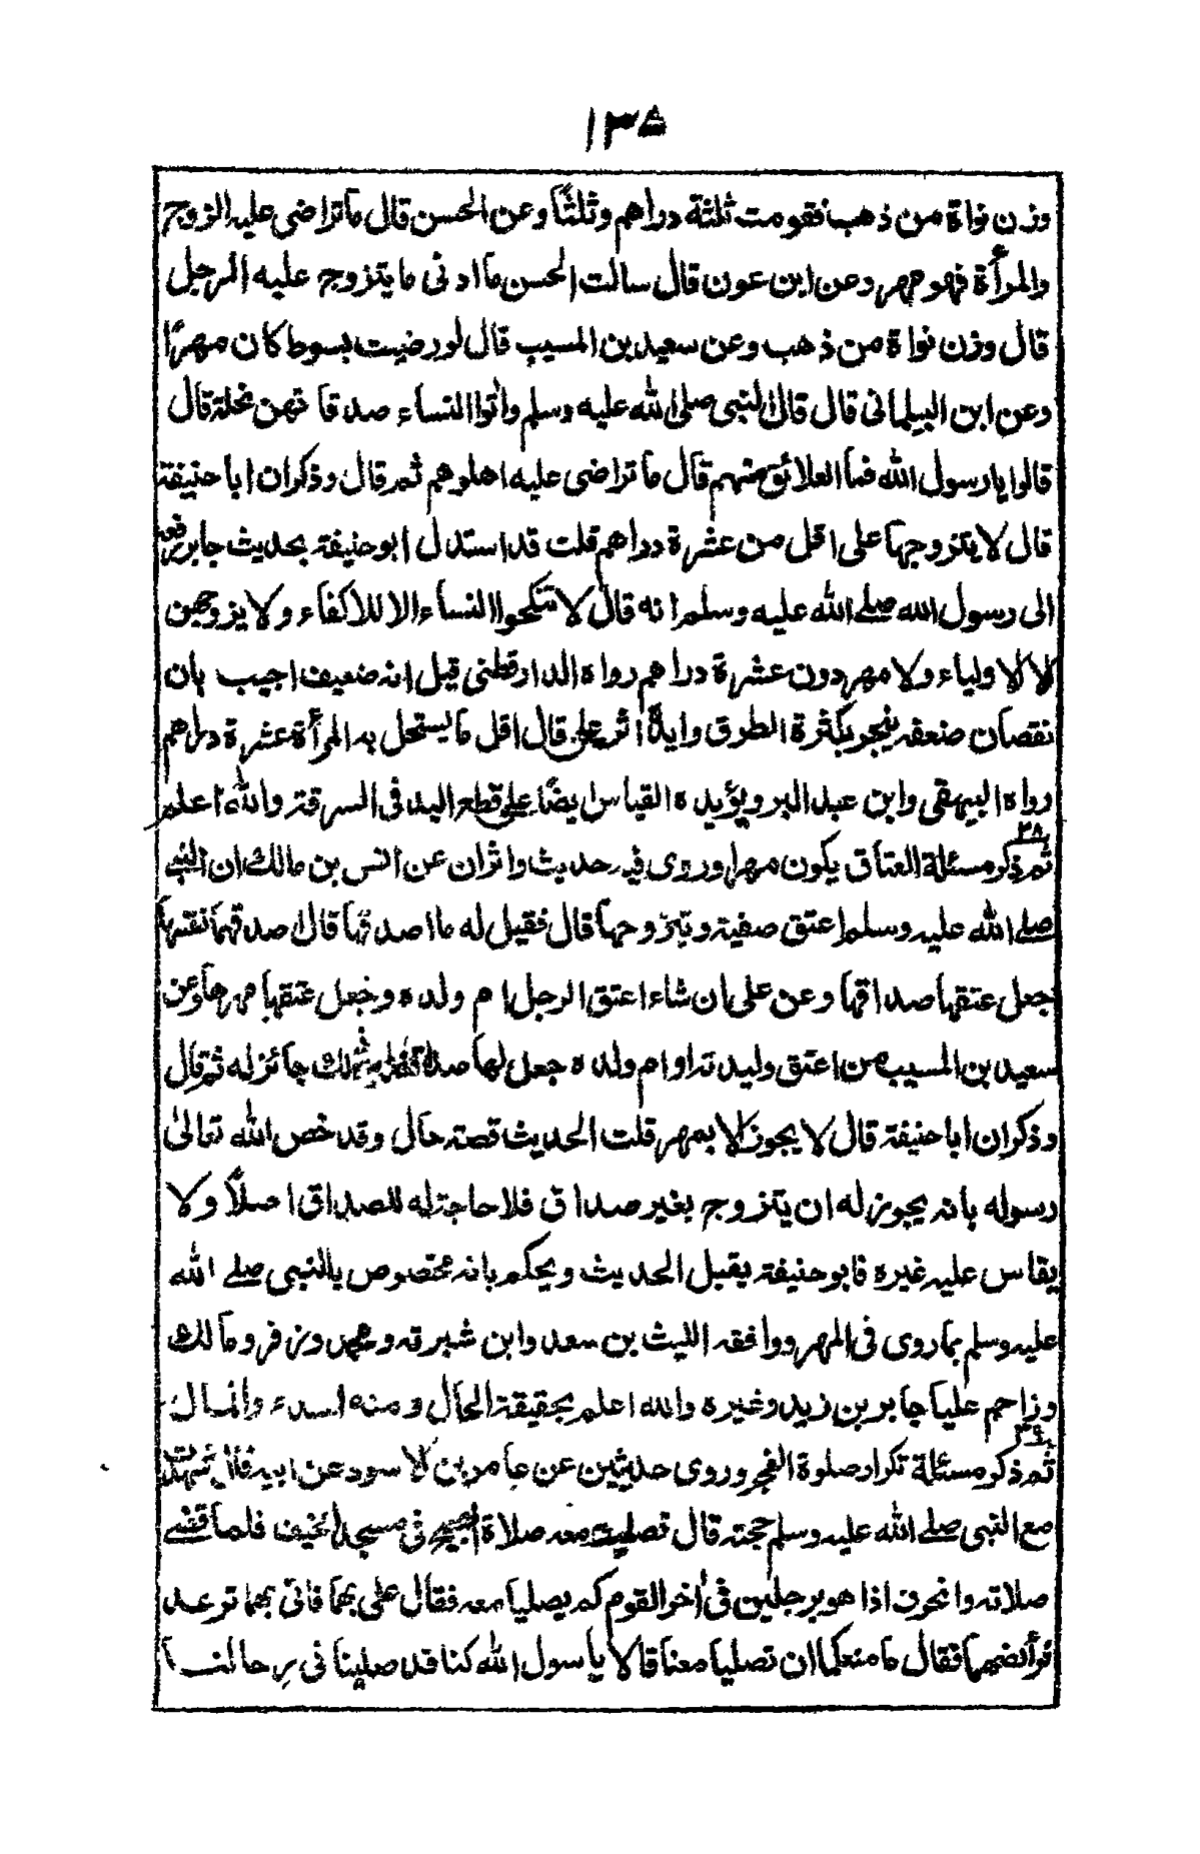 ١٣٥
وزن نواة من ذهب فقومت ثلثة دراهم وثلثا وعن الحسن قال ما تراضى عليه الزوج
والمرأة فهو مهر وعن ابن عون قال سالت الحسن ما ادنى ما يتزوج عليه الرجل
قال وزن نواة من ذهب وعن سعيد بن المسيب قال لو رضيت بسوط كان مهرًا
وعن ابن البيلمانى قال قال النبى صلى الله عليه وسلم واٰتوا النساء صدقاتهن نحلة قال
قالوا يا رسول الله فما العلائق بينهم قال ما تراضى عليه اهلوهم ثم قال وذكر ان ابا حنيفة
قال لا يتزوجها على اقل من عشرة دراهم قلت قد استدل ابو حنيفة بحديث جابر رفعه
الى رسول الله صلے الله عليه وسلم انه قال لا تنكحوا النساء الا للاكفاء ولا يزوجهن
الا الاولياء ولا مهر دون عشرة دراهم رواه الدارقطنى قيل انه ضعيف اجيب بان
نقصان ضعفه ينجبر بكثرة الطرق وايده اثر على قال اقل ما يستحل به المرأة عشرة دراهم
رواه البيهقى وابن عبد البر ويؤيده القياس ايضًا على قطع اليد فى السرقة والله اعلم
٣٨
ثم ذكر مسئلة العتاق يكون مهرا وروى فيه حديث واثران عن انس بن مالك ان النبے
صلے الله عليه وسلم اعتق صفية وتزوجها قال فقيل له ما اصدقها قال اصدقها نفسها
جعل عتقها صداقها وعن على ان شاء اعتق الرجل ام ولده وجعل عتقها مهرها وعن
سعيد بن المسيب من اعتق وليدته او ام ولده جعل لها صداقا جائز له ثم قال
وذكر ان ابا حنيفة قال لا يجوز الا بمهر قلت الحديث قصة حال وقد خص الله تعالىٰ
رسوله بانه يجوز له ان يتزوج بغير صداق فلا حاجة له للصداق اصلًا ولا
يقاس عليه غيره فابو حنيفة يقبل الحديث ويحكم بانه مختصوص بالنبى صلے الله
عليه وسلم بما روى فى المهر ووافقه الليث بن سعد وابن شبرقه ومحمد وزفر ومالك
وزاحم عليا جابر بن زيد وغيره والله اعلم بحقيقة الحال ومنه المبدء والمال
٣٩
ثم ذكر مسئلة تكرار صلوة الفجر وروى حديثين عن عامر بن الاسود عن ابيه قال شهدت
مع النبى صلے الله عليه وسلم حجته قال فصليت معه صلاة الصبح فى مسجد الخيف فلما قضے
صلاته وانحرف اذا هو برجلين فى اٰخر القوم لم يصليا معه فقال على بهما فاتى بهما ترعد
فرأئضهما فقال ما منعكما ان تصليا معنا قالا يا رسول الله كنا قد صلينا فى رحالنا